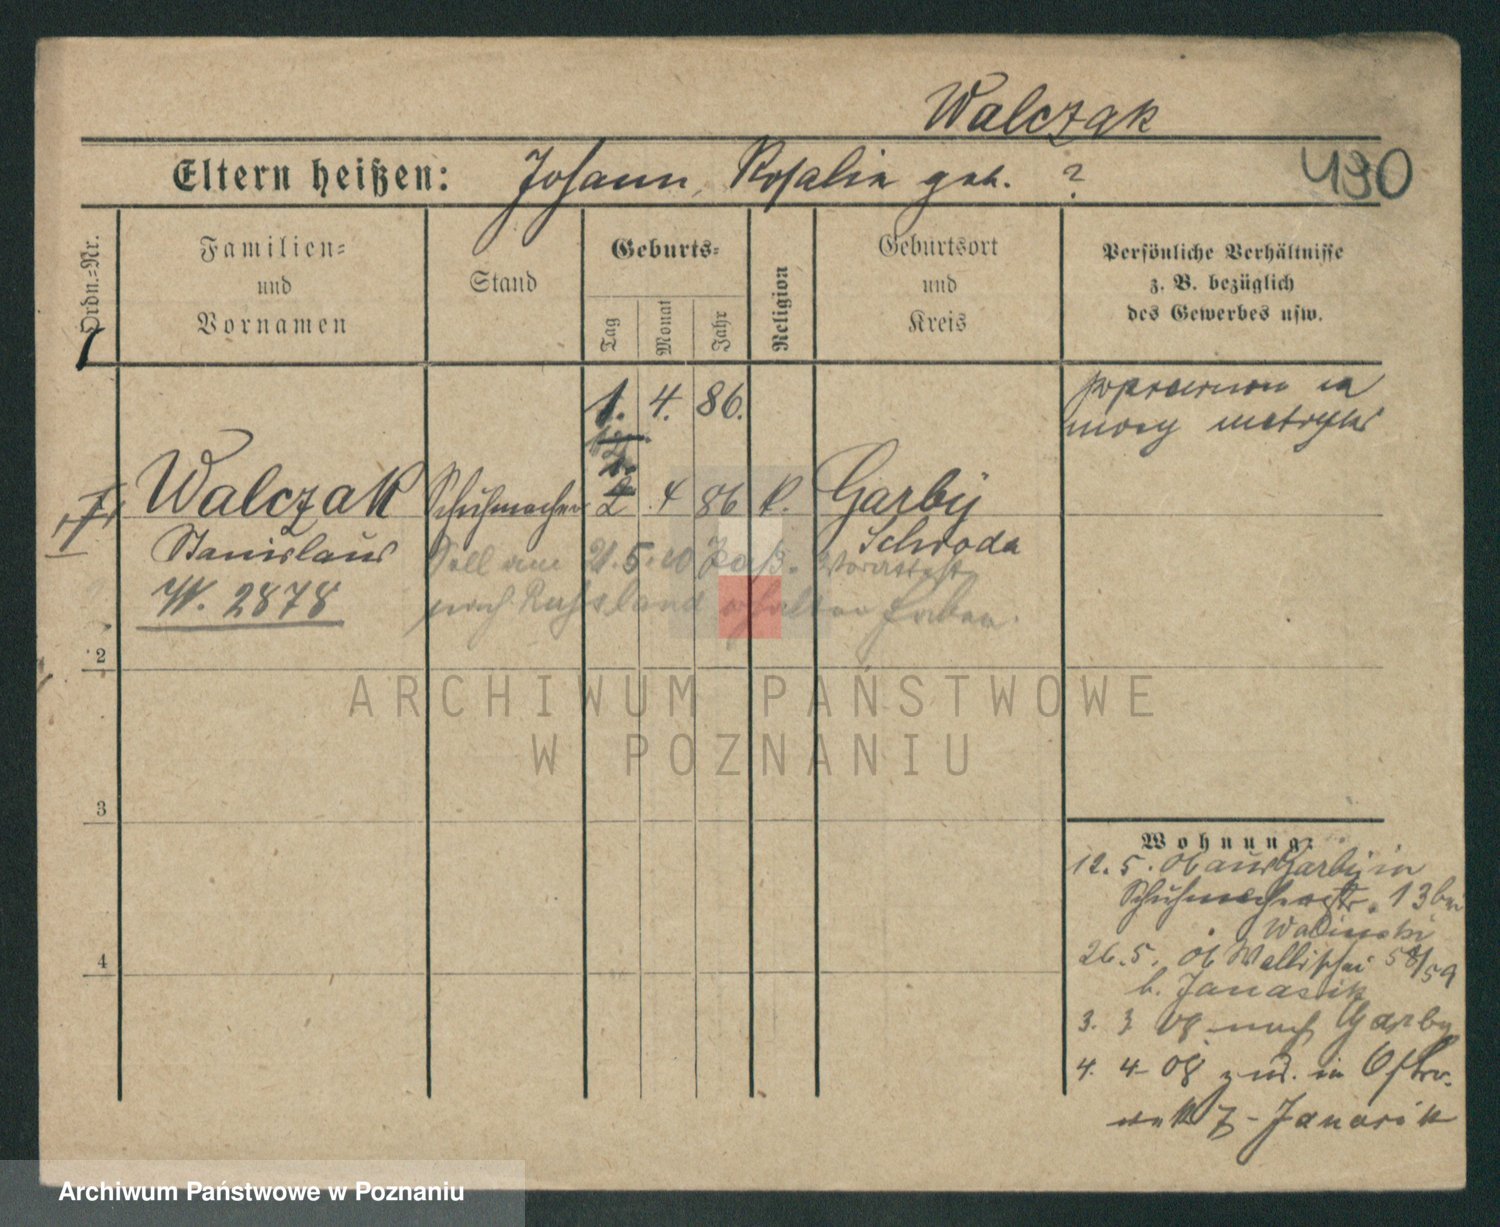 Walczak
Eltern heißen: Johann, Rosalie geb. ?
490
Ordn.=Nr.
Familien=
und
Vornamen
Stand
Geburts=
Tag
Monat
Jahr
Religion
Geburtsort
und
Kreis
Persönliche Verhältnisse
z. B. bezüglich
des Gewerbes usw.
1
1. 4. 86.
Walczak Schuhmacher 2 .4 86 k. Garby
Stanislaus Schroda
W. 2878
Soll am 21.5.10 Paß.
nach Russland erhalten haben.
2
3
4
poprawiono
mocy metryki
Wohnung:
12. 5. 06 aus Garby in
Schuhmacherstr. 13 bei
26. 5. 06 Wallischei 58/59
b. Janasik
3. 3 08 nach Garby
4. 4 08 zur. in Ostro-
wek 7 - Janasik
ARCHIWUM PAŃSTWOWE
W POZNANIU
Archiwum Państwowe w Poznaniu